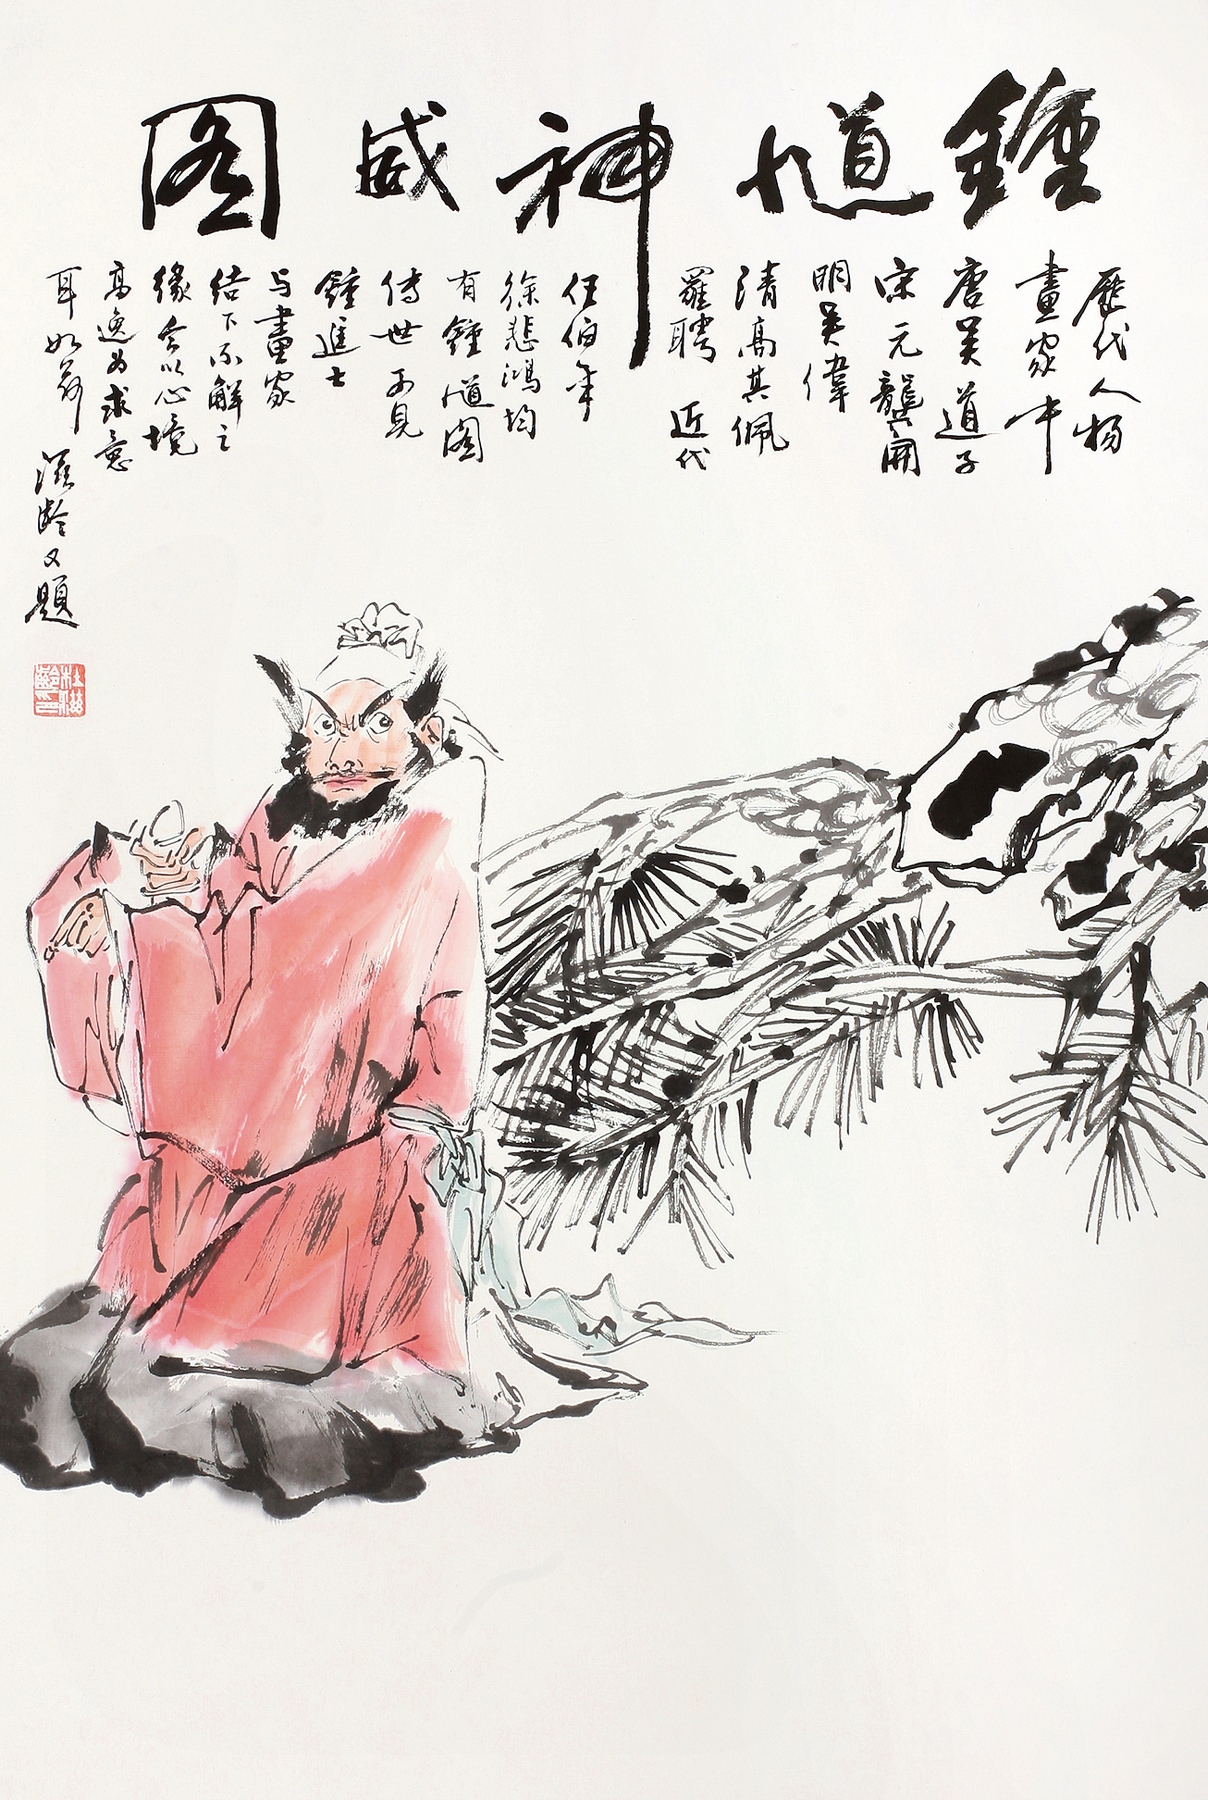 鍾馗神威图
歷代人物
畫家中
唐吴道子
宋元龔開
明吴偉
清高其佩
羅聘 近代
任伯年
徐悲鴻均
有鍾馗图
傳世可見
鍾進士
与畫家
结下不解之
緣今以心境
高逸为求意
耳如
滋龄又題
杜滋齡印